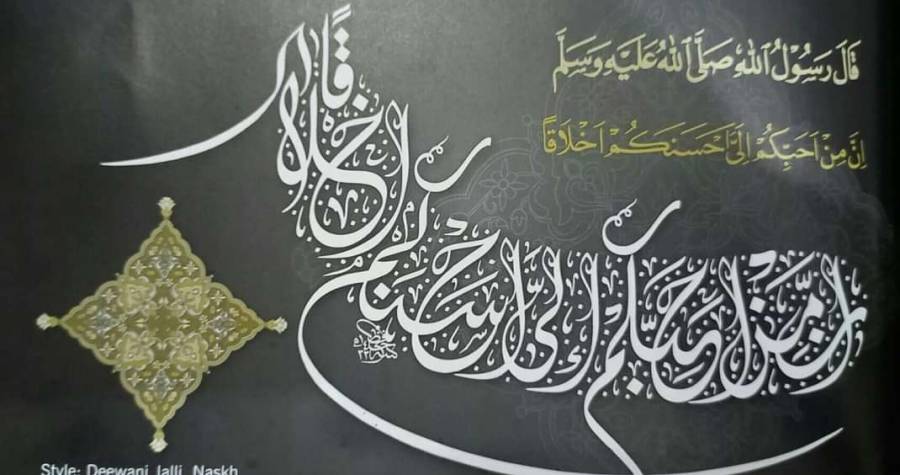 قَالَ رَسُوْلُ اللهِ صَلَّى اللهُ عَلَيْهِ وَسَلَّمَ
اِنَّ مِنْ اَحَبِّكُمْ اِلَىَّ اَحْسَنَكُمْ اَخْلَاقًا
اِنَّ مِنْ اَحَبِّكُمْ اِلَىَّ اَحْسَنَكُمْ اَخْلَاقًا
Style: Deewani Jalli, Naskh